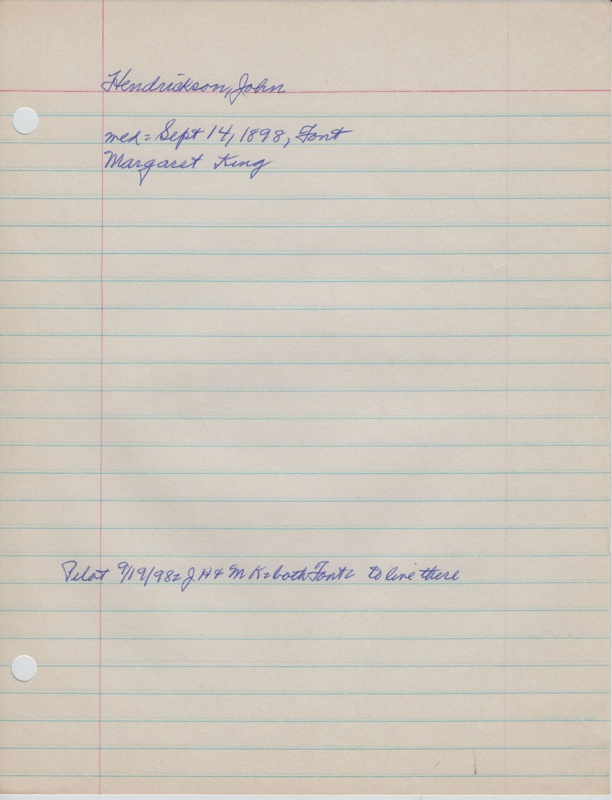 Hendrickson, John
med= Sept 14, 1898, Font
Margaret King
Pilot 9/19/98= J H & M K= both Font= to live there